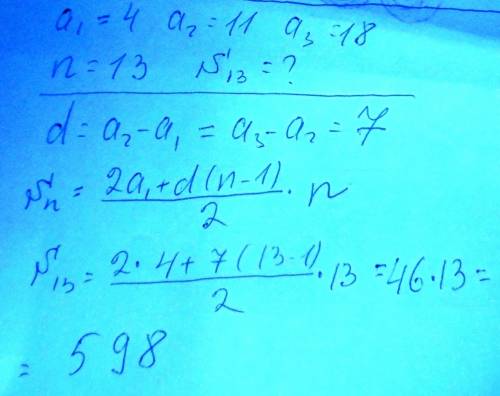 a₁ = 4 a₂ = 11 a₃ = 18
n = 13 S₁₃ = ?
d = a₂ - a₁ = a₃ - a₂ = 7
Sₙ = (2a₁ + d(n-1))/2 · n
S₁₃ = (2 · 4 + 7(13-1))/2 · 13 = 46 · 13 =
= 598